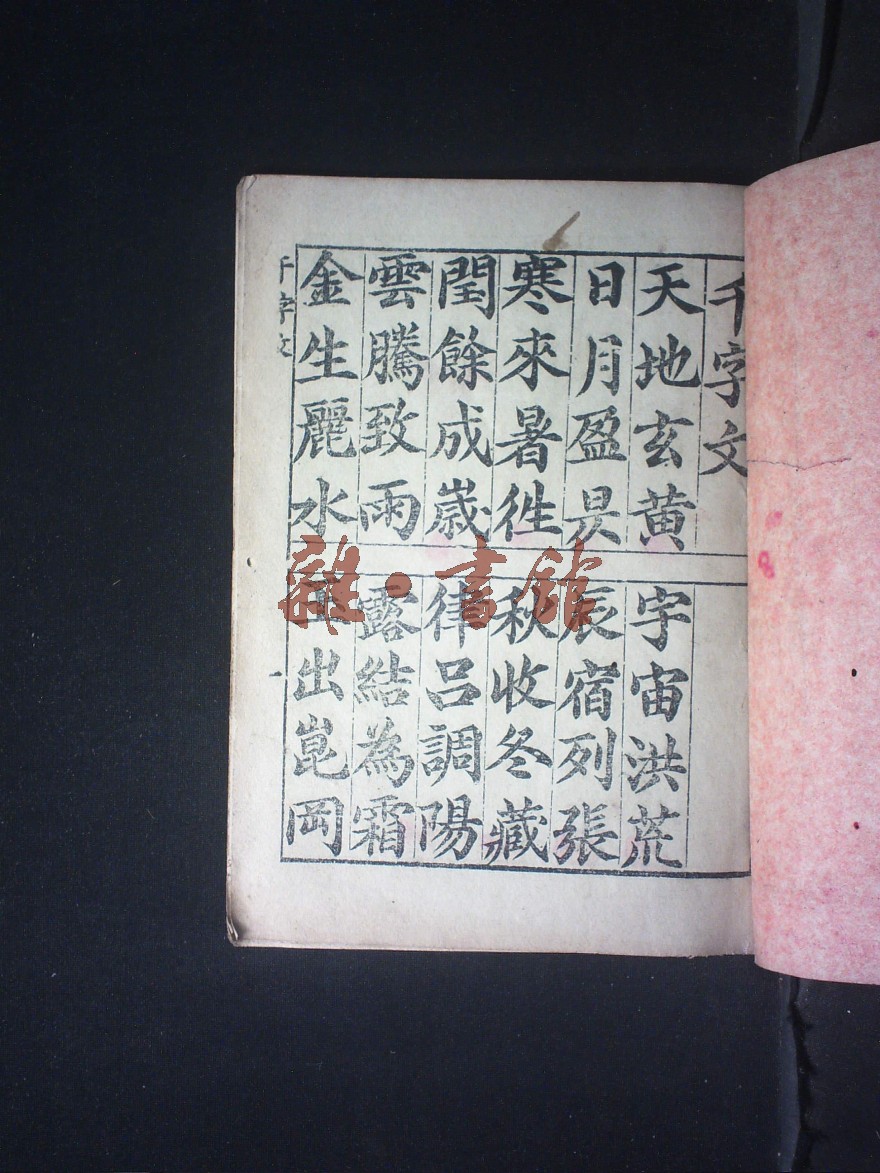 千字文
天地玄黄 宇宙洪荒
日月盈昃 辰宿列張
寒來暑徃 秋收冬藏
閏餘成嵗 律吕調陽
雲騰致雨 露結為霜
金生麗水 玉出崑岡
千字文 一
雜·書館